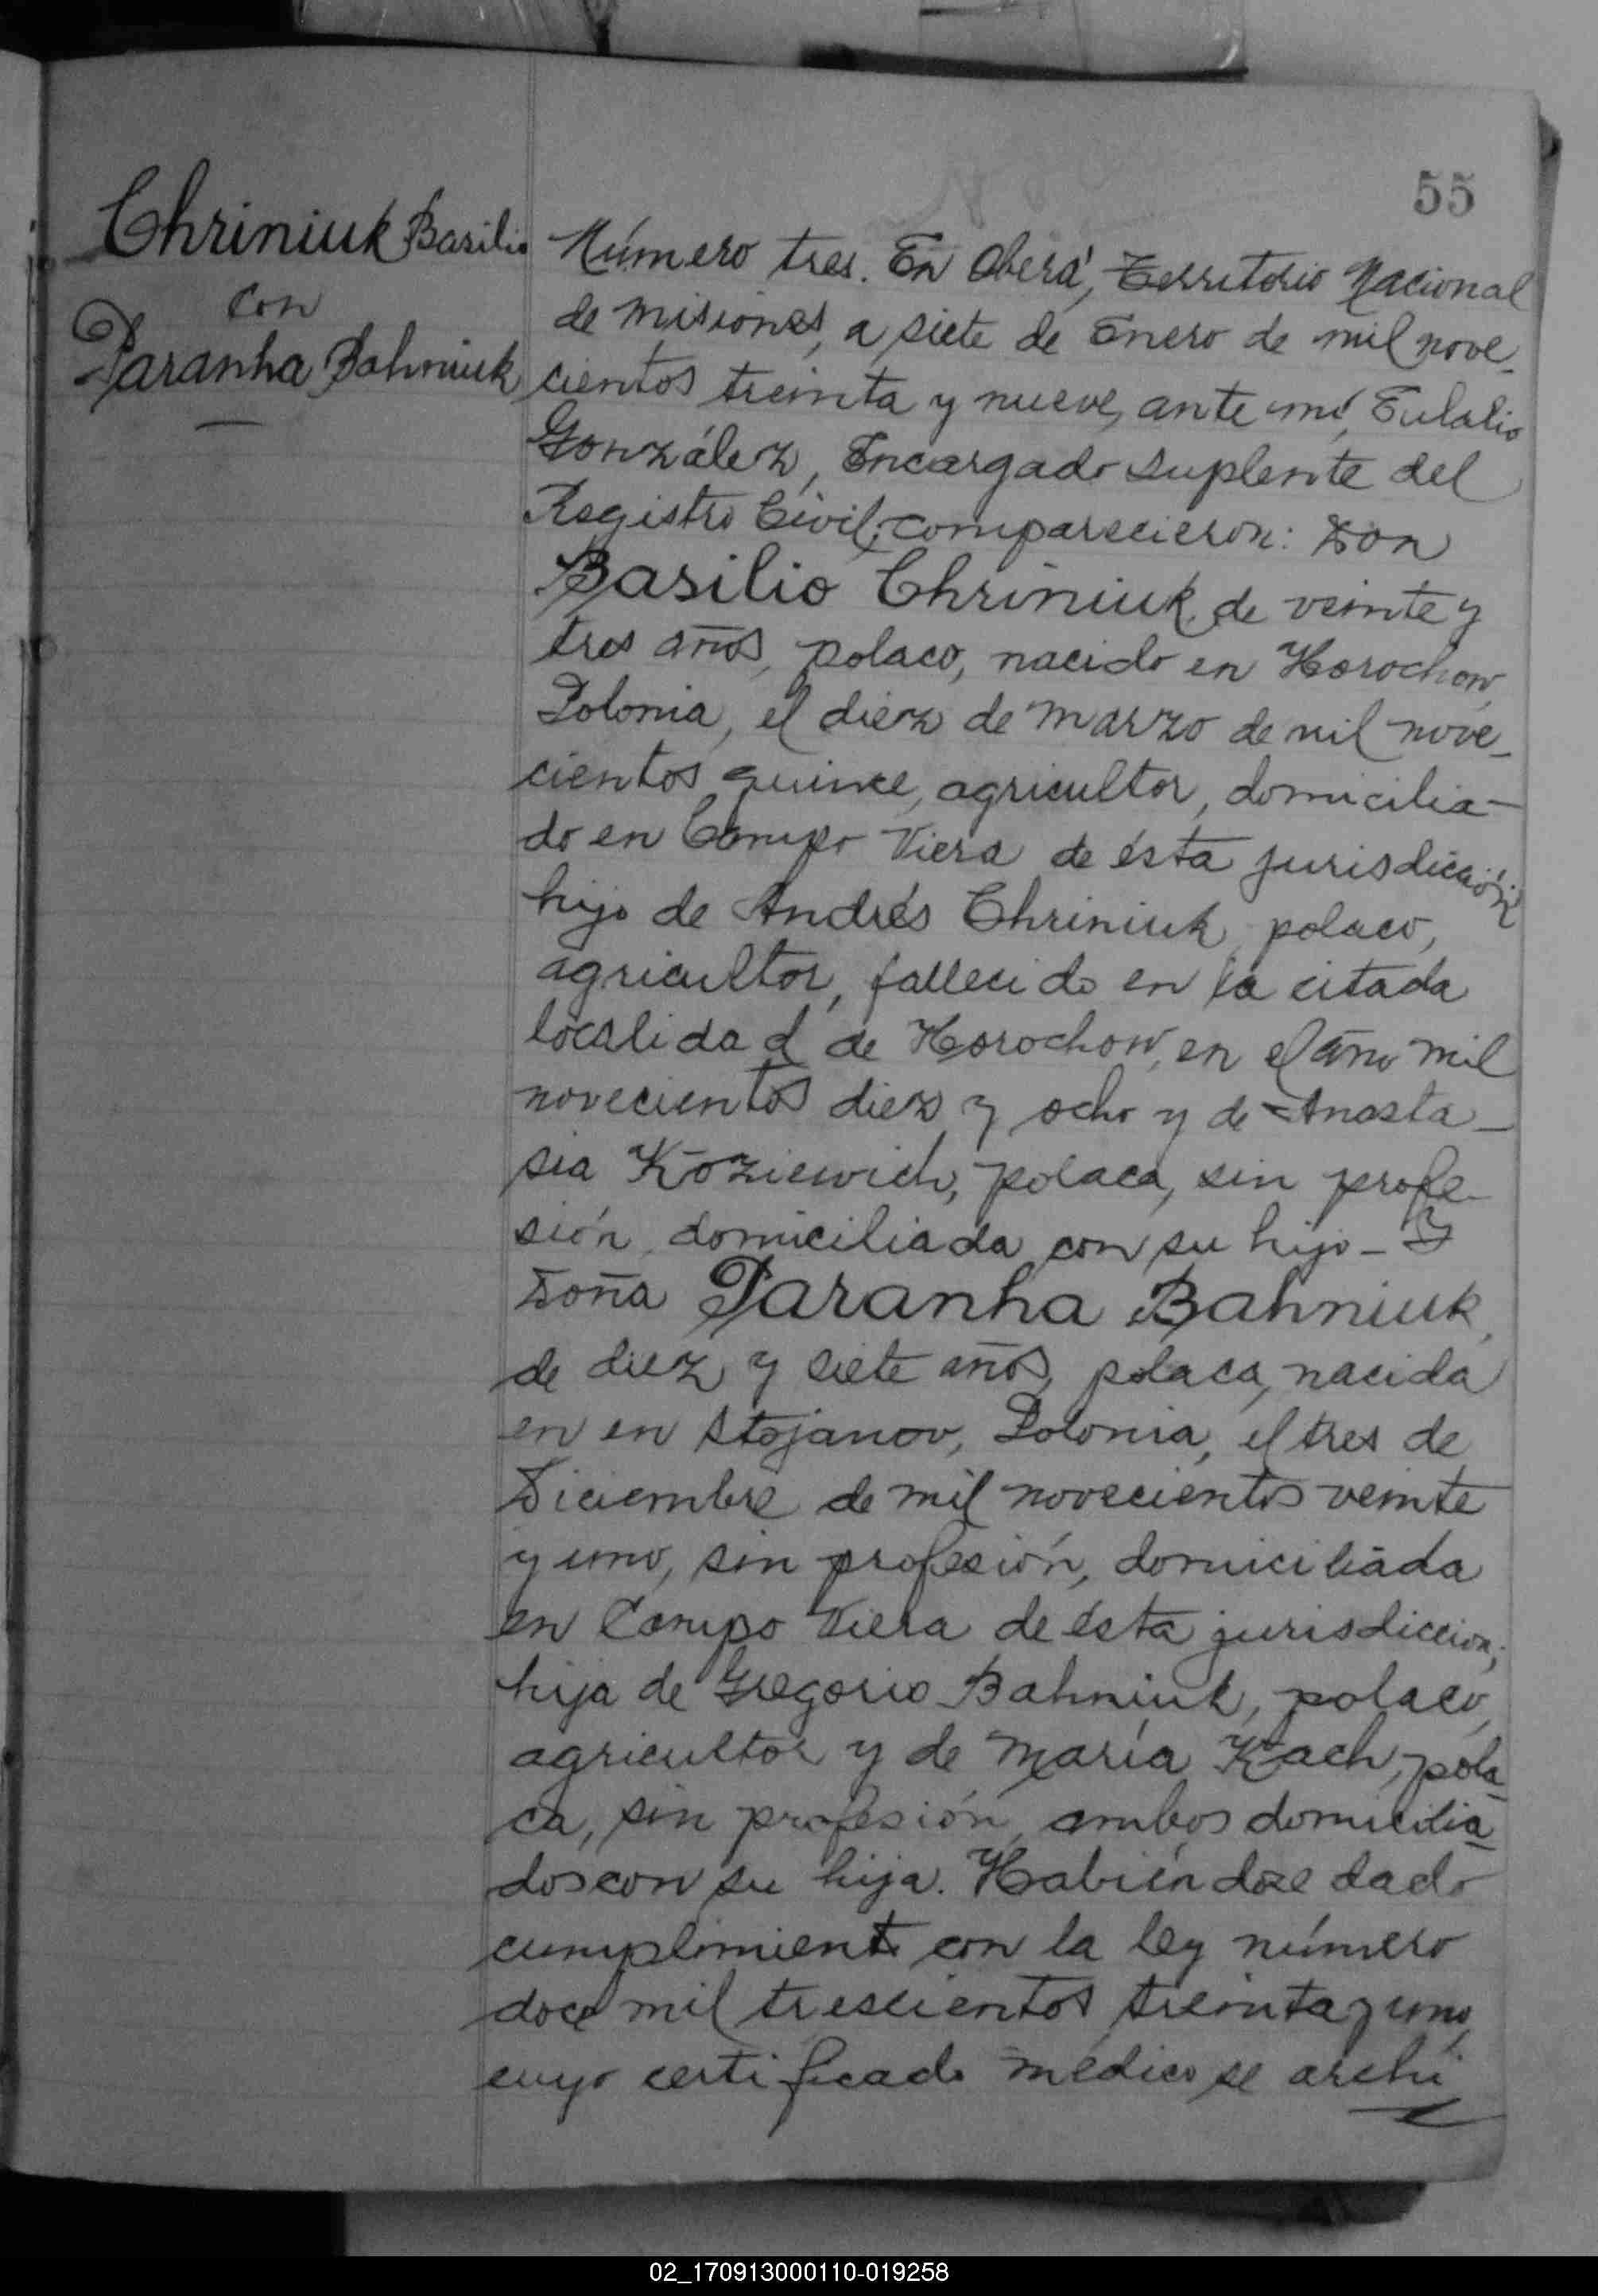 55
Chriniuk Basilio
con
Paranha Bahniuk
Número tres. En Oberá, Territorio Nacional
de Misiones, a siete de Enero de mil nove_
cientos treinta y nueve, ante mí, Eulalio
González, Encargado Suplente del
Registro Civil, comparecieron: Don
Basilio Chriniuk, de veinte y
tres años, polaco, nacido en Horochow,
Polonia, el diez de Marzo de mil nove_
cientos quince, agricultor, domicilia-
do en Campo Viera de ésta jurisdicción
hijo de Andrés Chriniuk, polaco,
agricultor, fallecido en la citada
localidad de Horochow, en el año mil
novecientos diez y ocho y de Anasta_
sia Koziewich, polaca, sin profe-
sión, domiciliada con su hijo - Y
Doña Paranha Bahniuk,
de diez y siete años, polaca, nacida
en en Stojanov, Polonia, el tres de
Diciembre de mil novecientos veinte
y uno, sin profesión, domiciliada
en Campo Viera de ésta jurisdiccion;
hija de Gregorio Bahniuk, polaco,
agricultor y de María Kach, pola_
ca, sin profesión, ambos domicilia_
dos con su hija. Habiéndose dado
cumplimiento con la ley número
doce mil trescientos treinta y uno,
cuyo certificado médico se archi_
02_170913000110-019258